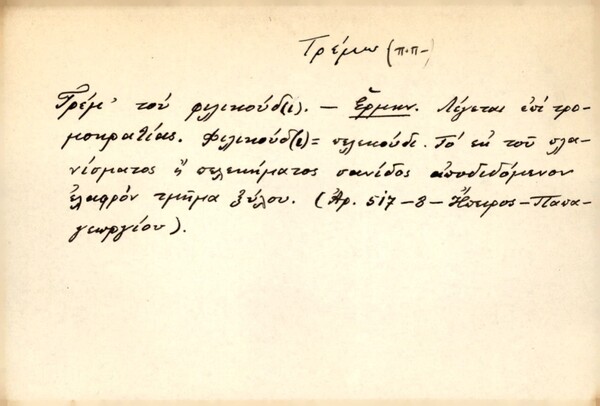 Τρέμω (π.π-)
Τρέμ' τού φελεκούδ(ι). – Ἑρμην. Λέγεται ἐπί τρο-
μοκρατίας. Φελεκούδ(ι) = πελεκούδι. Τό ἐκ τοῦ πλα-
νίσματος ἤ πελεκήματος σανίδος ἀποδιδόμενον
ἐλαφρόν τμῆμα ξύλου. (Ἀρ. 517-8-Ἤπειρος-Παπα-
γεωργίου).